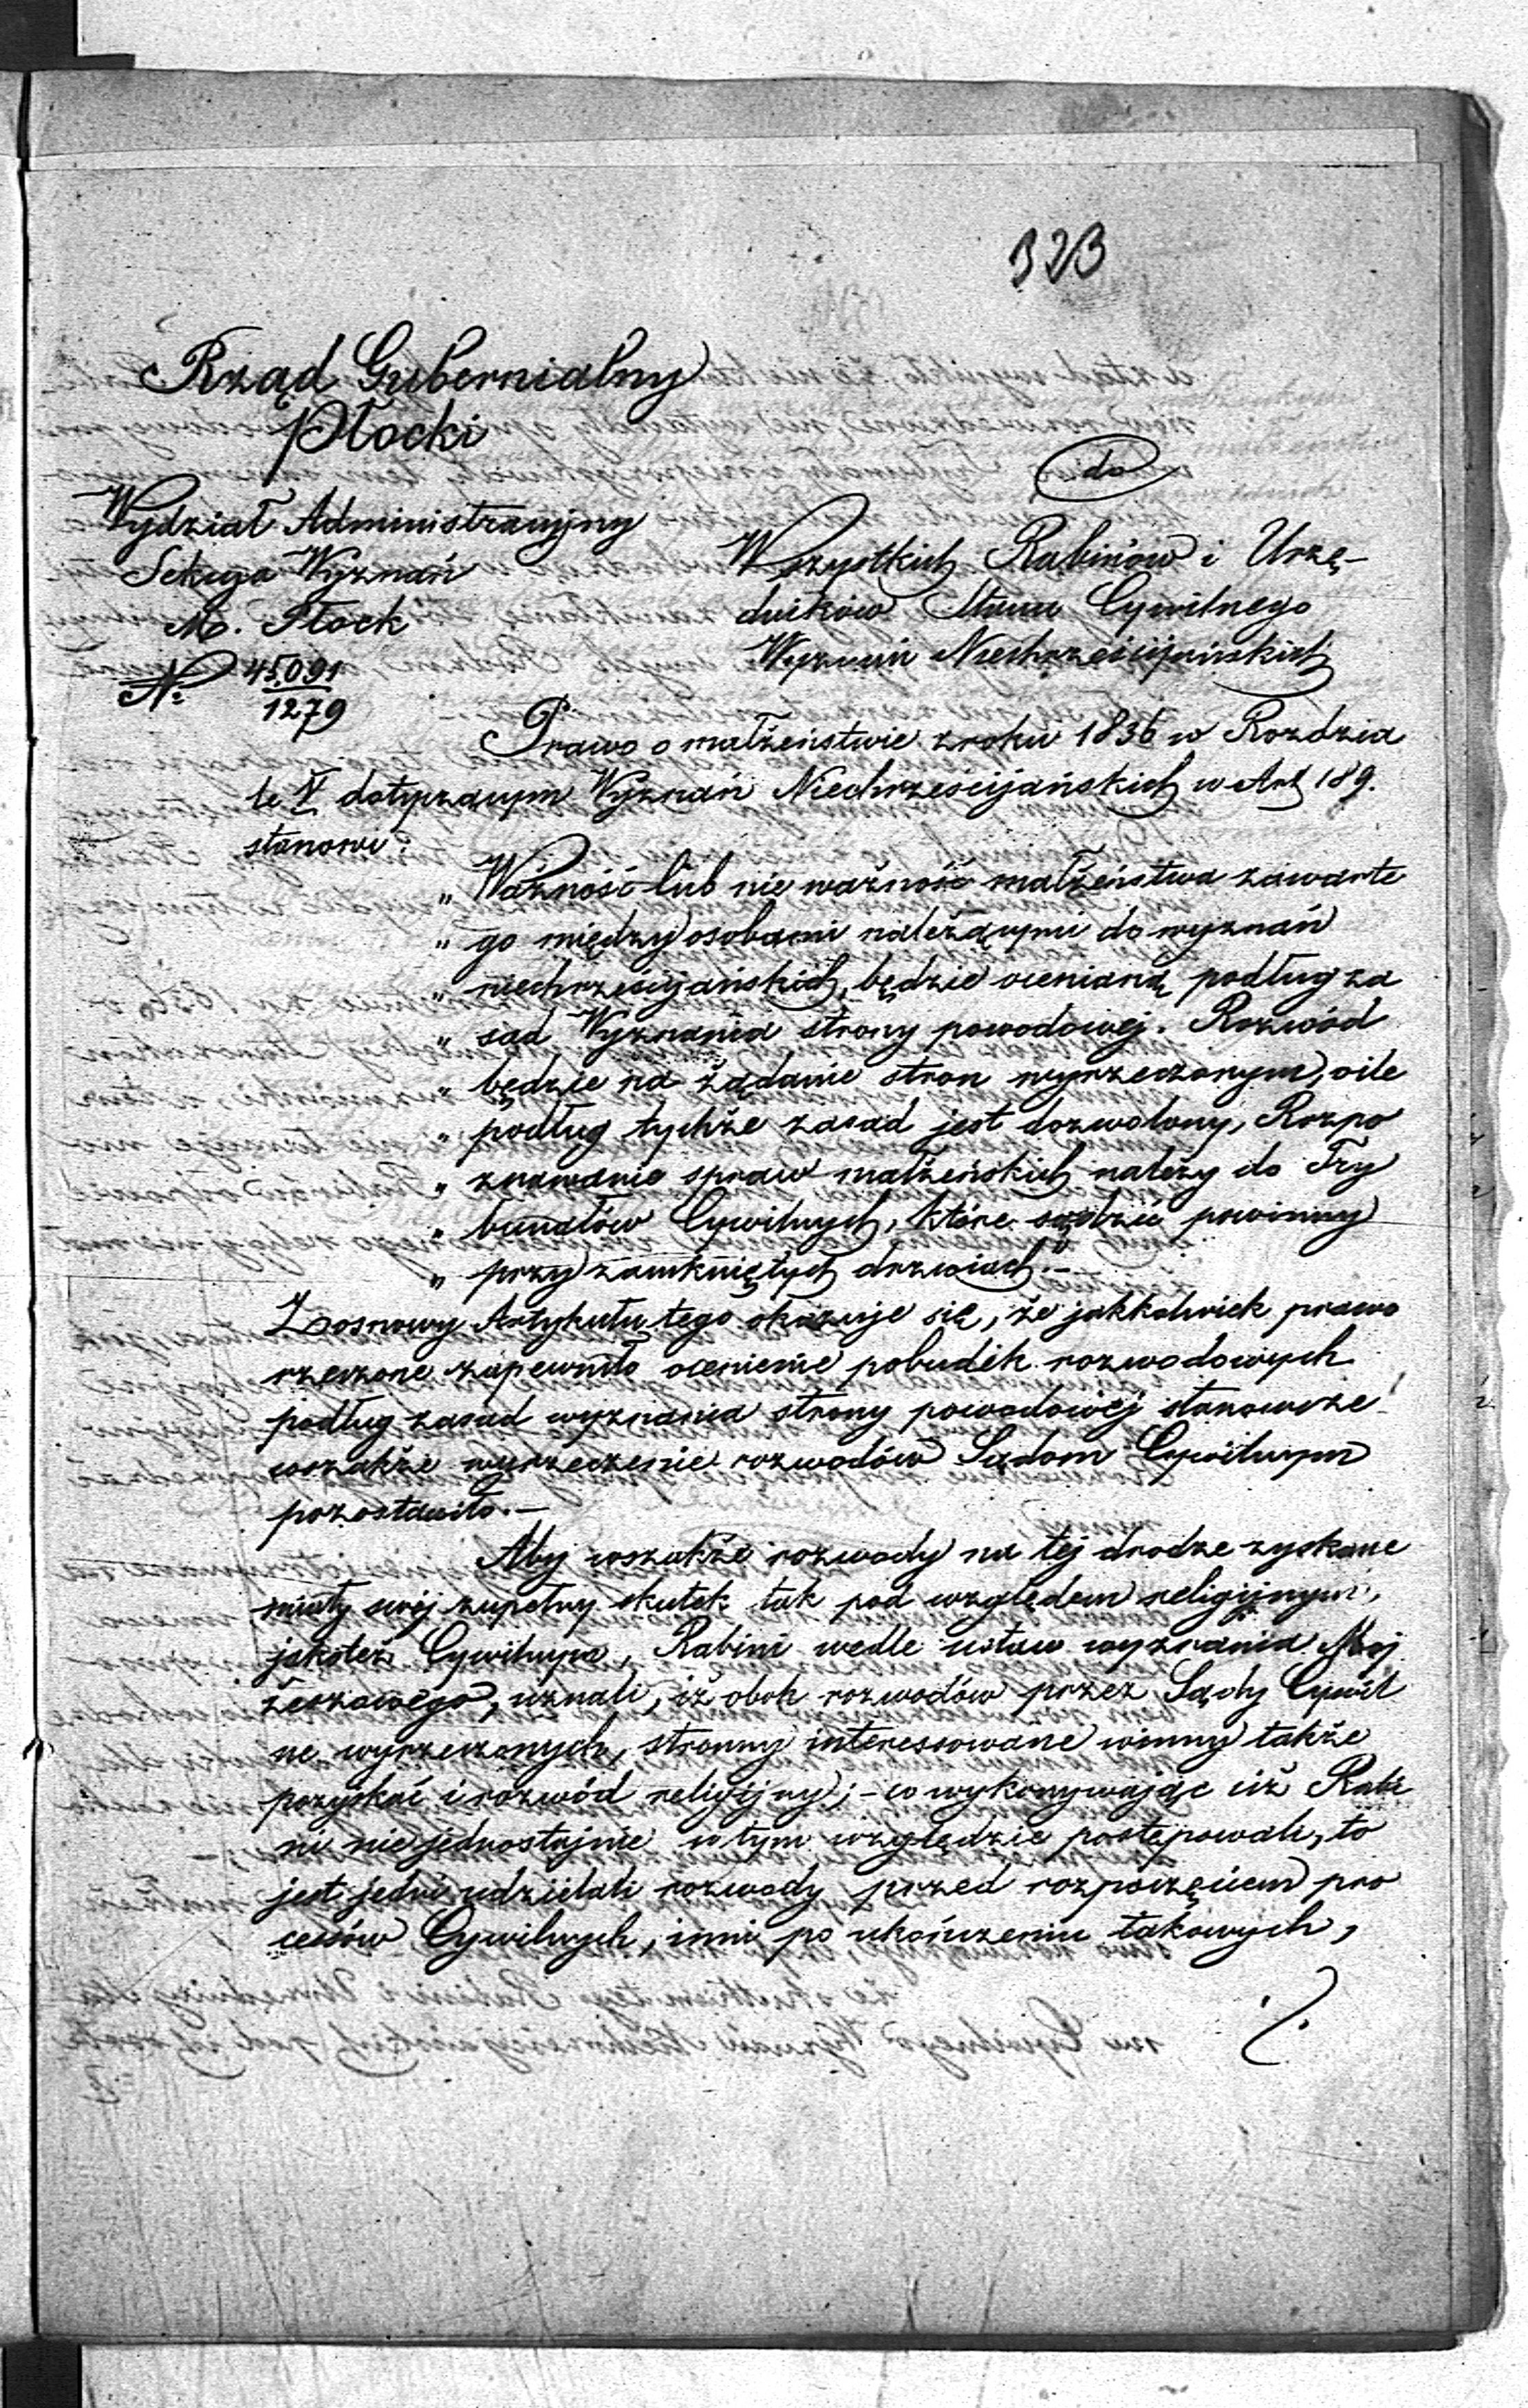 323
Rząd Gubernialny
Płocki
Wydział Administracyjny
Sekcya Wyznań
M. Płock
№ 45.091
1279
do
Wszystkich Rabinów i Urzę-
dników Stanu Cywilnego
Wyznań Niechrześcijańskich
Prawo o małżeństwie z roku 1836 w Rozdzia
le V dotyczącym Wyznań Niechrześcijańskich w Art 189.
stanowi:
„ Ważność lub nieważność małżeństwa zawarte
„ go między osobami należącymi do wyznań
„ niechrześcijańskich, będzie ocenianą podług za
„ sad Wyznania strony powodowej. Rozwód
„ będzie na żądanie stron wyrzeczonym, oile
„ podług tychże zasad jest dozwolony, Rozpo
„ znawanie spraw małżeńskich należy do Try
„ bunałów Cywilnych, które sądzić powinny
„ przy zamkniętych drzwiach."-
Z osnowy Artykułu tego okazuje się, że jakkolwiek prawo
rzeczone zapewniło ocenienie pobudek rozwodowych
podług zasad wyznania strony powodowej stanowcze
wszakże wyrzeczenie rozwodów Sądom Cywilnym
pozostawiło.-
Aby wszakże rozwody na tej drodze zyskane
miały swój zupełny skutek tak pod względem religijnym,
jakoteż Cywilnym, Rabini wedle ustaw wyznania Moj
żeszowego, uznali, iż obok rozwodów przez Sądy Cywil
ne wyrzeczonych, strony interessowane winny także
pozyskać i rozwód religijny; - co wykonywając iż Rabi
ni niejednostajnie w tym względzie postępowali, to
jest jedni udzielali rozwody przed rozpoczęciem pro
cesów Cywilnych, inni po ukończeniu takowych,